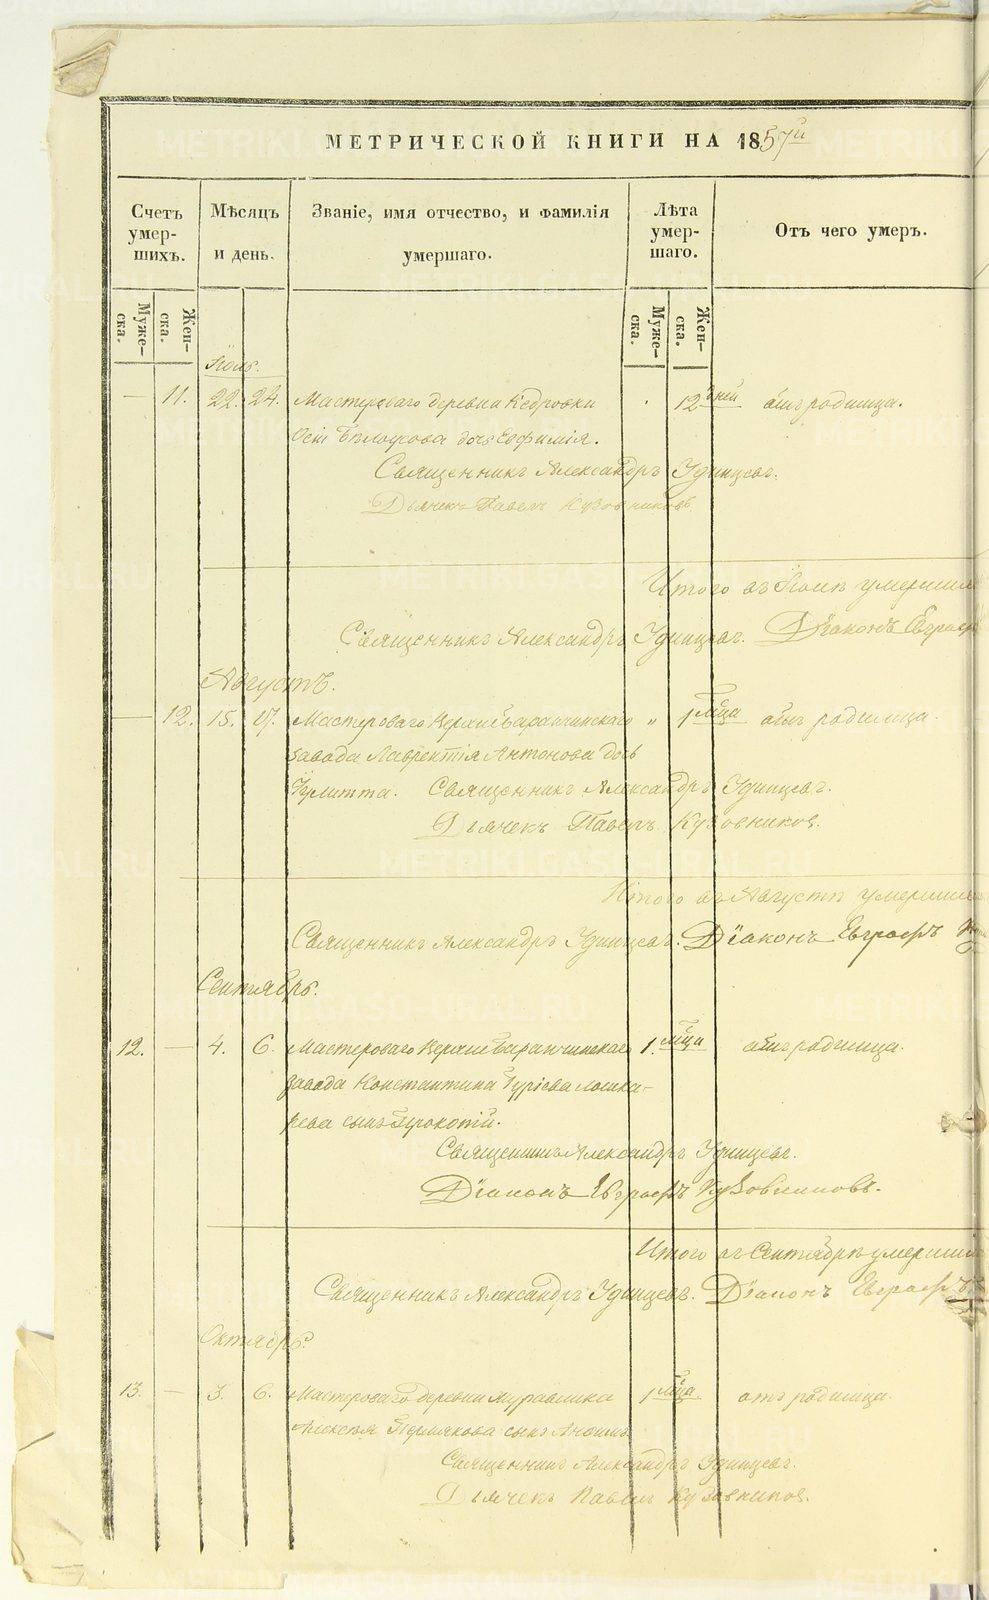 МЕТРИЧЕСКОЙ КНИГИ НА 1857й
Счетъ умер- шихъ.
Мѣсяцъ и день.
Званіе, имя отчество, и фамилія умершаго.
Лѣта умер- шаго.
Отъ чего умеръ.
Муже- ска.
Жен- ска.
Муже- ска.
Жен- ска.
Іюль.
— 11. 22. 24. Мастероваго деревни Кедровки 12 дней отъ родимца.
дочь Евфимія.
Священникъ Александръ Удинцевъ.
Дьячекъ Павелъ Кузовниковъ
Итого въ Іюлѣ умерших
Священникъ Александръ Удинцевъ. Діаконъ Евграфъ
Августъ.
— 12. 15. 17. Мастероваго Верхнебаранчинскаго „ 1 м͠ца отъ родимца.
завода Лаврентія Антонова дочь
Улитта. Священникъ Александръ Удинцевъ.
Дьячекъ Павелъ Кузовниковъ.
Итого въ Августѣ умерших
Священникъ Александръ Удинцевъ. Діаконъ Евграфъ
Сентябрь.
12. — 4. 6. Мастероваго Верхнебаранчинскаго 1. м͠ца отъ родимца.
завода Константина Гурьева Лошка-
рева сынъ Прокопій.
Священникъ Александръ Удинцевъ.
Діаконъ Евграфъ Кузовниковъ.
Итого въ Сентябрѣ умерших
Священникъ Александръ Удинцевъ. Діаконъ Евграфъ
Октябрь.
13. — 3. 6. Мастероваго деревни 1 м͠ца отъ родимца.
Алексѣя Пермякова сынъ
Священникъ Александръ Удинцевъ.
Дьячекъ Павелъ Кузовниковъ.
METRIKI.GASO-URAL.RU